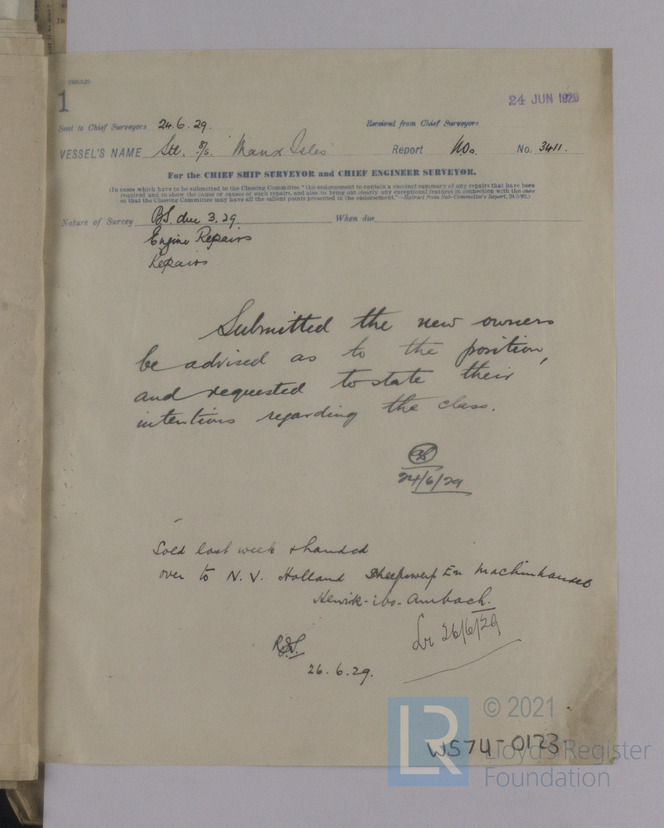 1
24 JUN 1929
Sent to Chief Surveyors 24.6.29. Received from Chief Surveyors
VESSEL'S NAME Stl. S/s. "Manx Isles" Report Wo. No. 3411.
For the CHIEF SHIP SURVEYOR and CHIEF ENGINEER SURVEYOR.
(In cases which have to be submitted to the Classing Committee "the endorsement to contain a succinct summary of any repairs that have been
required and to show the cause or causes of such repairs, and also to bring out clearly any exceptional features in connection with the case
so that the Classing Committee may have all the salient points presented in the endorsement."
Nature of Survey BS. due 3.29. When due
Engine Repairs
Repairs
Submitted the new owners
be advised as to the position,
and requested to state their
intentions regarding the class.
24/6/29
Sold last week & handed
over to N.V. Holland Sheepswerf En Machinhandel
Hendrik-ido-Ambach.
Lr 26/6/29
26.6.29.
W574-0123
LR
© 2021
Lloyd's Register
Foundation